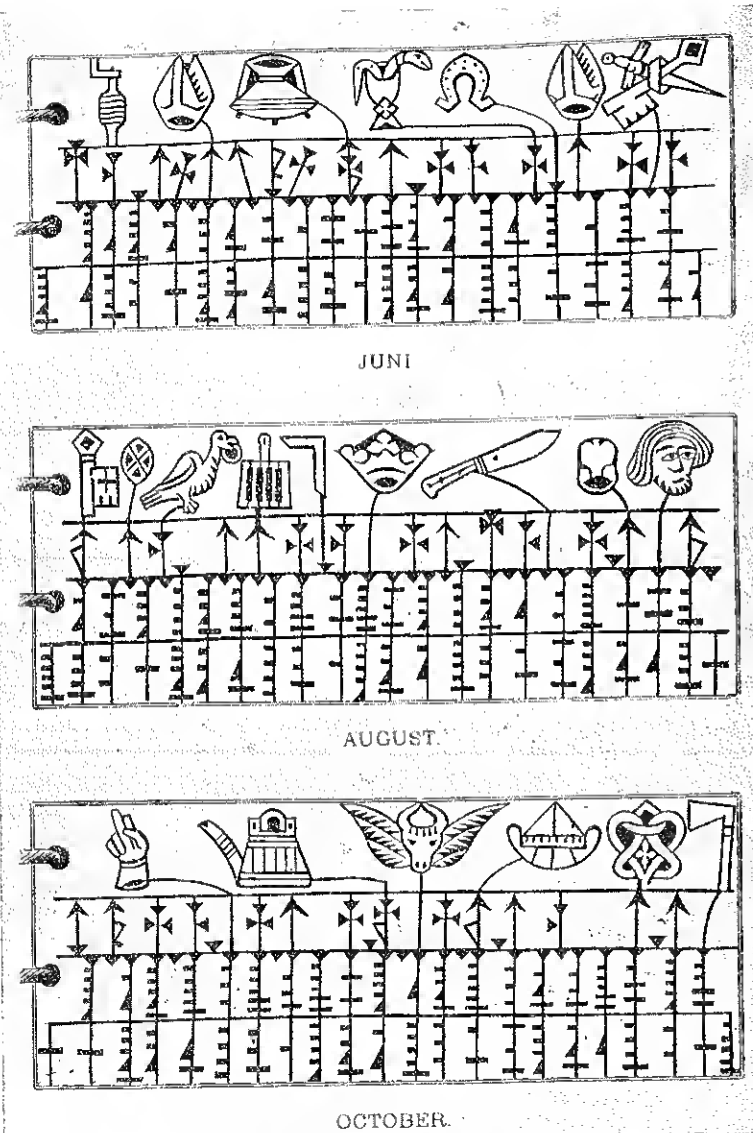 JUNI
AUGUST.
OCTOBER.